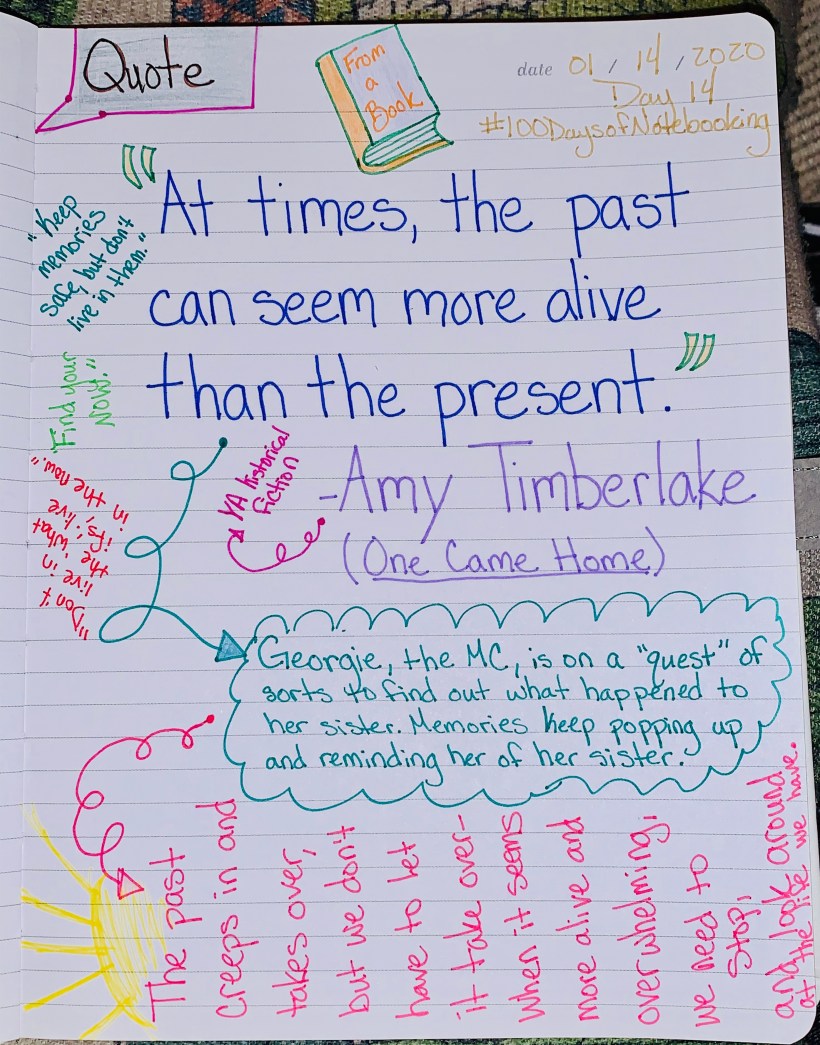 Quote
From
a
Book
date 01 / 14 / 2020
Day 14
#100DaysofNotebooking
"At times, the past
can seem more alive
than the present."
-Amy Timberlake
(One Came Home)
YA historical
fiction
"Keep
memories
safe, but don't
live in them."
"Find your
NOW!"
"Don't
live in
the 'what
ifs,' live
in the now."
Georgie, the MC, is on a "quest" of
sorts to find out what happened to
her sister. Memories keep popping up
and reminding her of her sister.
The past
creeps in and
takes over,
but we don't
have to let
it take over-
when it seems
more alive and
overwhelming,
we need to
stop,
and look around
at the life we have.